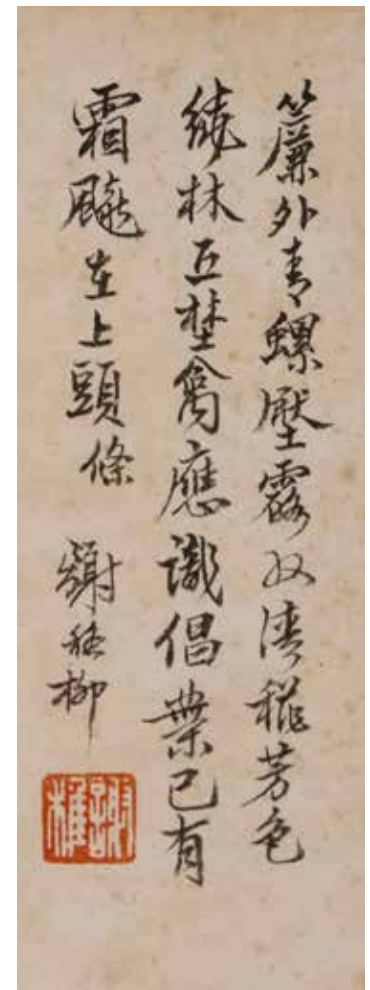 簾外青螺壓露收穠芳色
繞林丘埜禽應識倡葉已有
霜飈在上頭條
謝稚柳
謝稚